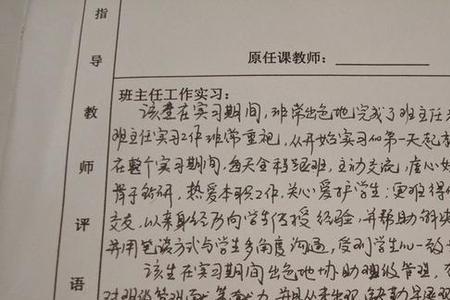 指导教师评语
原任课教师：
班主任工作实习：
该生在实习期间，非常出色地完成了班主任
班主任实习工作非常重视，从开始实习的第一天起
在整个实习期间，每天全程跟班，主动交流，虚心好
善于钻研，热爱本职工作，关心爱护学生；更难得
交友，以亲身经历向学生传授经验，并帮助解决
并用笔谈方式与学生多角度沟通，受到学生一致
该生在实习期间出色地协助班级管理，